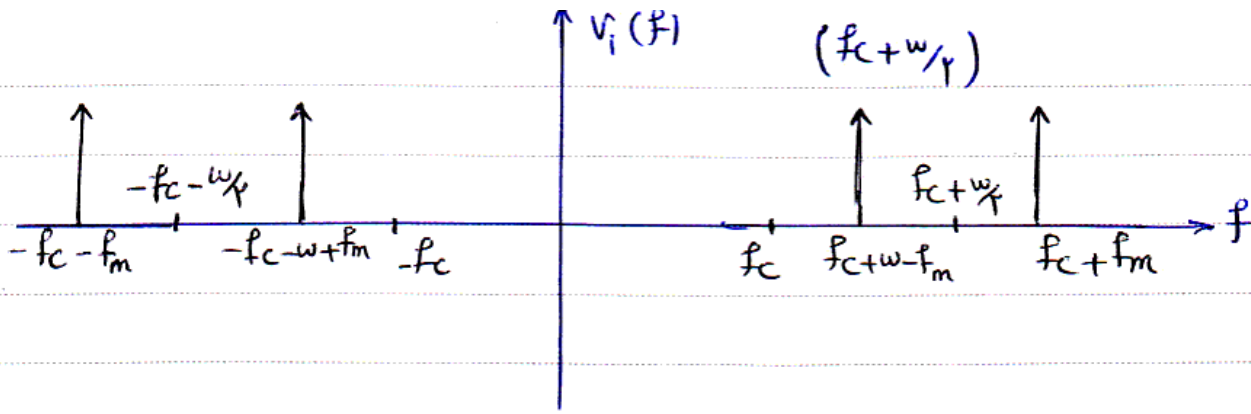 V_i(f) (f_c + w/۲)
-f_c - w/۲ f_c + w/۲
-f_c - f_m -f_c - w + f_m -f_c f_c f_c + w - f_m f_c + f_m f